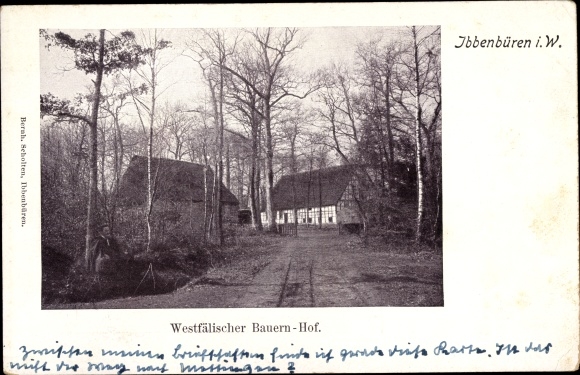 Ibbenbüren i. W.
Bernh. Scholten, Ibbenbüren.
Westfälischer Bauern-Hof.
Zwischen meinen Briefschaften finde ich gerade diese Karte. Ist das
nicht der Weg nach Mettingen?